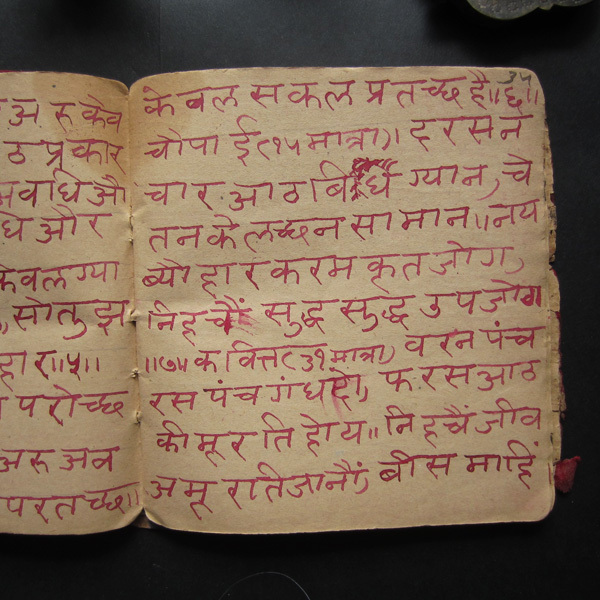 अ रु केव
ठ प्रकार
अवधि औ
धि और
केवलग्या
सो तु झ
हार॥५॥
परोच्छ
अरु अव
परतच्छ॥
३५
केवल सकल प्रतच्छ है॥६॥
चौपाई(१५ मात्रा)। दरसन
चार आठ बिधि ग्यान, चे
तन के लच्छन सामान॥ नय
ब्यौहार करम कृत जोग,
निहचैं सुद्ध सुद्ध उपजोग
॥७॥ कवित्त(३१ मात्रा) वरन पंच
रस पंच गंध दो, फरस आठ
की मूरति होय॥ निहचैं जीव
अमूरति जानौं, बीस माहिं